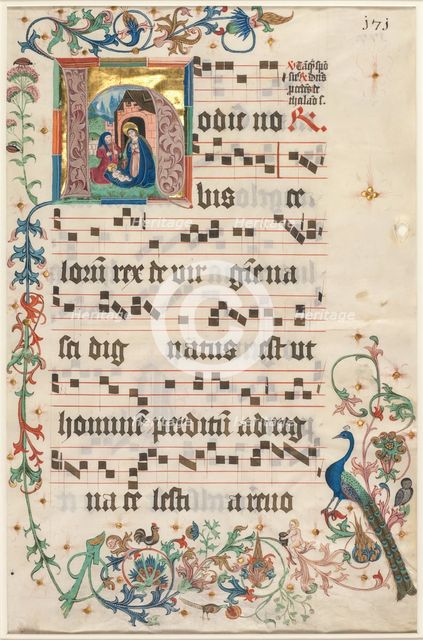 171
Hodie no R.
bis ce
lorū rex de vir gīe na
sci dig natus est ut
hominē perditū ad reg
na ce lesti a revo
Heritage Heritage
Heritage Heritage
Heritage Heritage